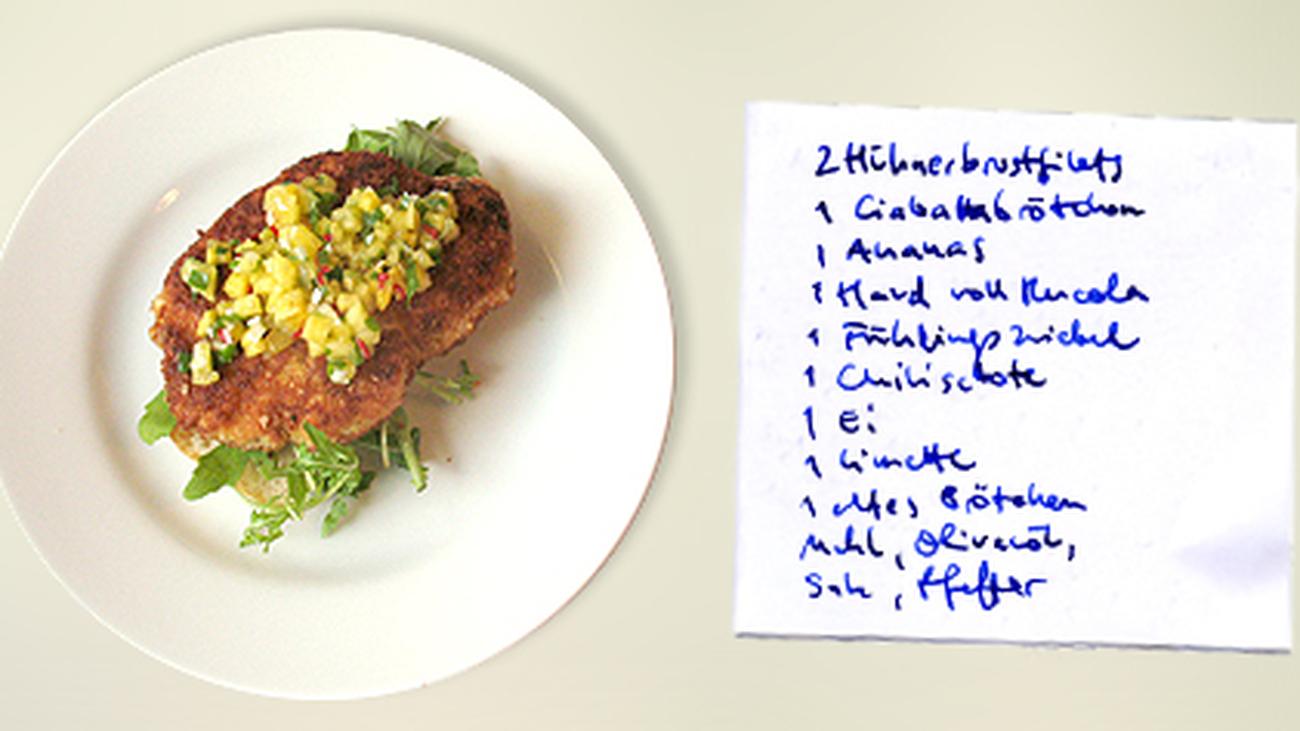 2 Hühnerbrustfilets
1 Ciabattabrötchen
1 Ananas
1 Hand voll Rucola
1 Frühlingszwiebel
1 Chilischote
1 Ei
1 Limette
1 altes Brötchen
Mehl, Olivenöl,
Salz, Pfeffer